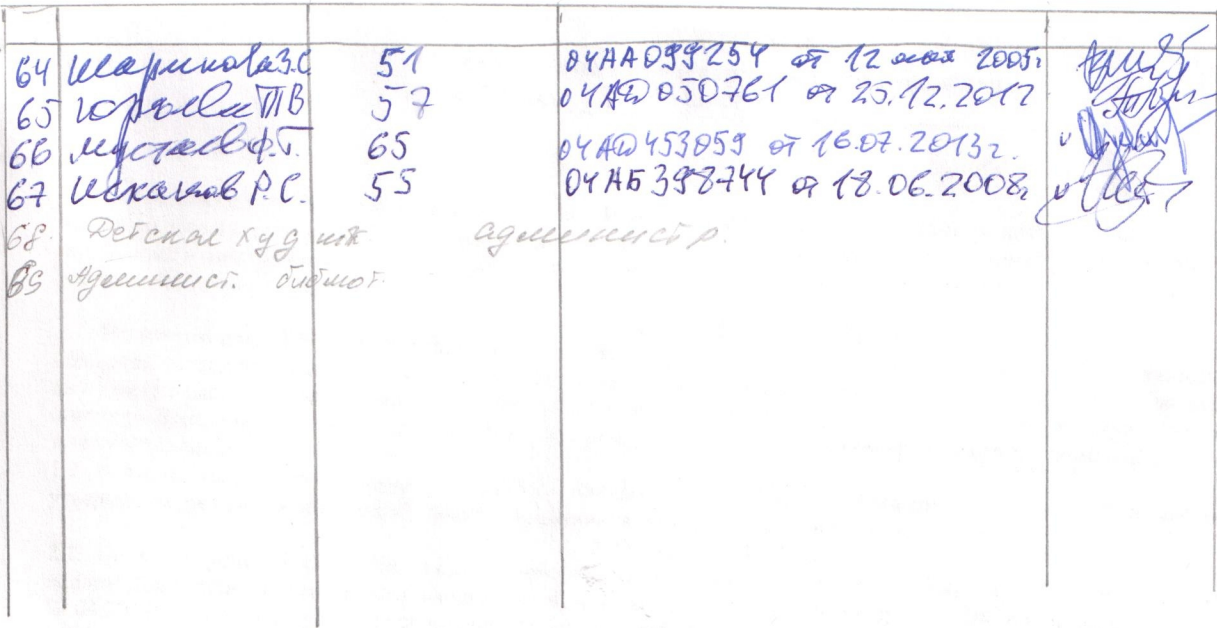 64 Шарипова З.С. 51 04АА099254 от 12 мая 2005г
65 ТВ 57 04АД050761 от 25.12.2012
66 Мустаев Ф.Г. 65 04АД453059 от 16.07.2013г.
67 Исхаков Р.С. 55 04АБ398744 от 18.06.2008г
68. Детская худ шк администр.
69 Админист. библиот.